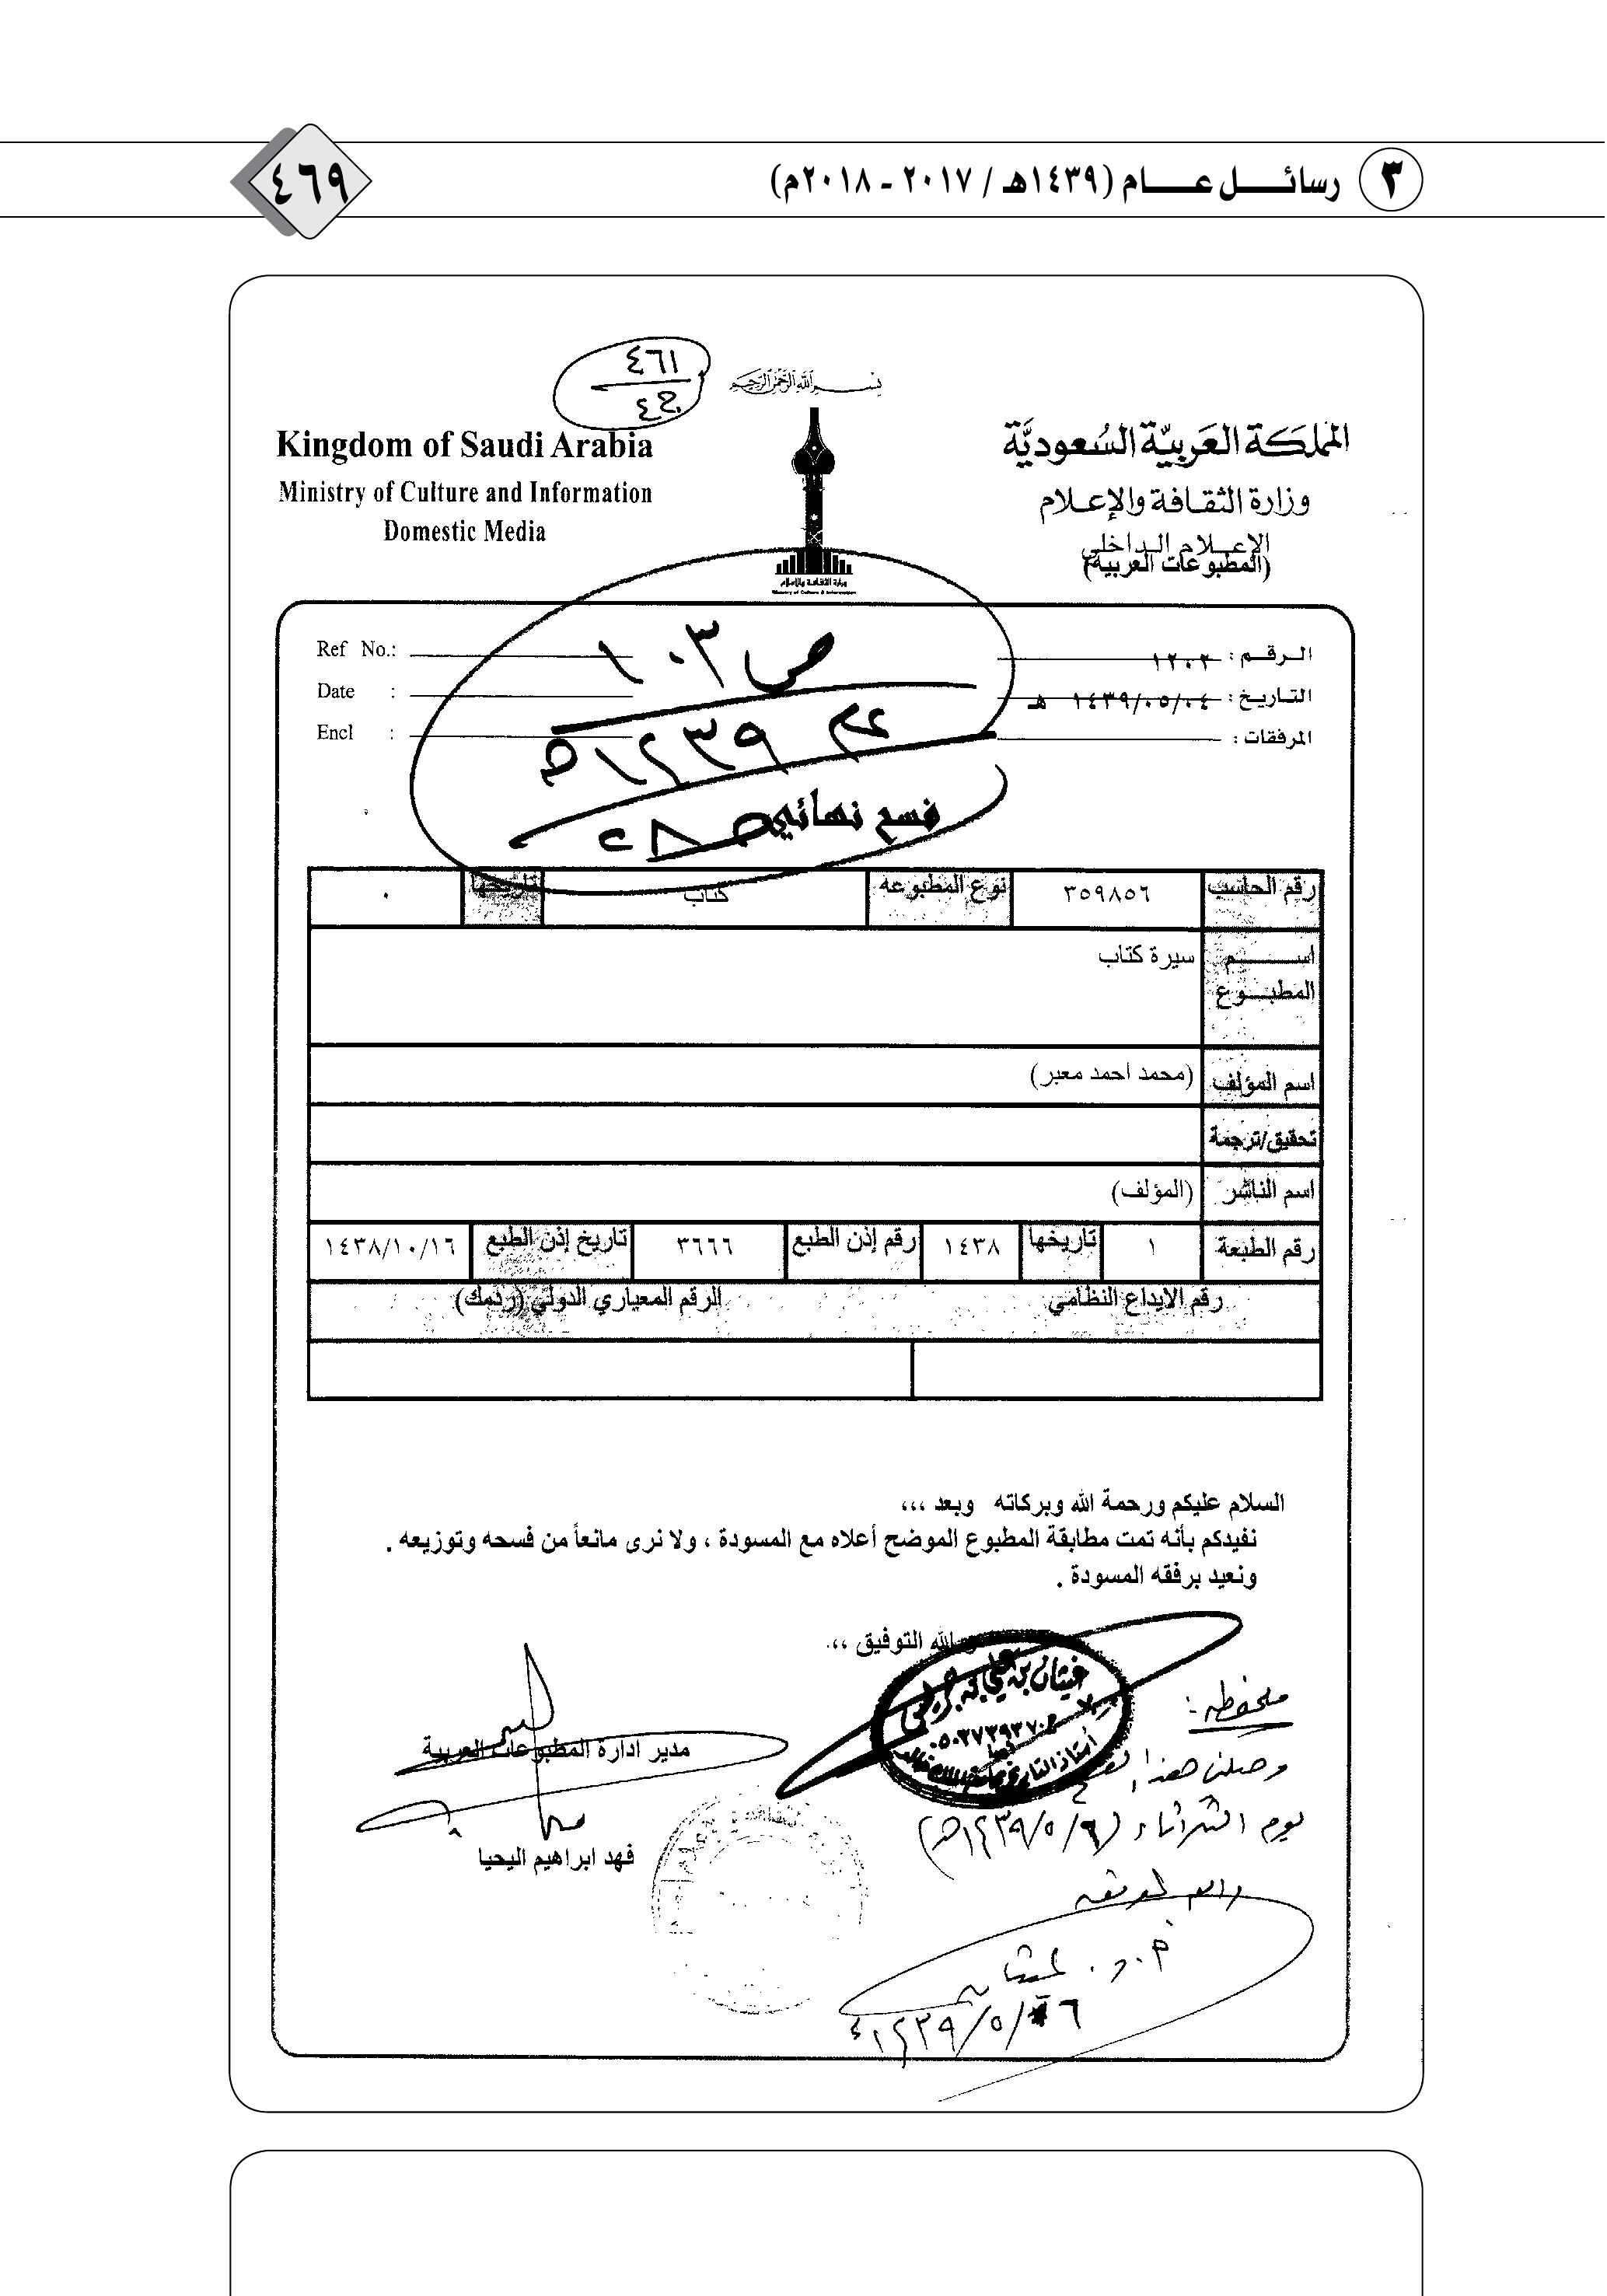 ٣ رسائل عام (١٤٣٩هـ / ٢٠١٧ - ٢٠١٨م)
٤٦٩
٤٦١
٤٢
بسم الله الرحمن الرحيم
المملكة العربية السعودية
وزارة الثقافة والإعلام
الإعلام الداخلي
(المطبوعات العربية)
Kingdom of Saudi Arabia
Ministry of Culture and Information
Domestic Media
وزارة الثقافة والإعلام
Ministry of Culture & Information
الرقم : ١٢٠٢
التاريخ : ١٤٣٩/٠٥/٠٤ هـ
المرفقات :
Ref No.:
Date :
Encl :
ص ١٠٣
عام ١٤٣٩هـ
فسح نهائي
رقم الحاسب ٣٥٩٨٥٦ نوع المطبوعه كتاب تاريخها ٠
اسم المطبوع سيرة كتاب
اسم المؤلف (محمد احمد معبر)
تحقيق/ترجمة
اسم الناشر (المؤلف)
رقم الطبعة ١ تاريخها ١٤٣٨ رقم إذن الطبع ٣٦٦٦ تاريخ إذن الطبع ١٤٣٨/١٠/١٦
رقم الايداع النظامي الرقم المعياري الدولي (ردمك)
السلام عليكم ورحمة الله وبركاته وبعد ،،،
نفيدكم بأنه تمت مطابقة المطبوع الموضح أعلاه مع المسودة ، ولا نرى مانعاً من فسحه وتوزيعه .
ونعيد برفقه المسودة .
وبالله التوفيق ،،،
غيثان بن علي بن جريس
٠٥٠٣٧٣٩٣٧٠
أستاذ التاريخ
مدير ادارة المطبوعات العربية
فهد ابراهيم اليحيا
ملحوظه :-
وصلني هذا الفسح
يوم الثلاثاء (١٤٣٩/٥/٦هـ)
والله الموفق
أ.د. غيثان
١٤٣٩/٥/٦هـ